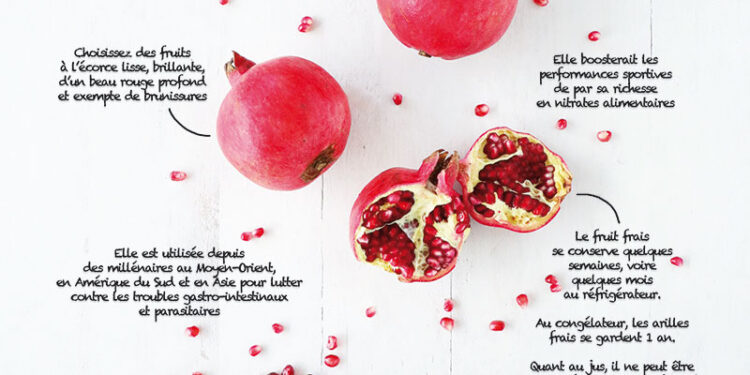 Choisissez des fruits
à l'écorce lisse, brillante,
d'un beau rouge profond
et exempte de brunissures
Elle boosterait les
performances sportives
de par sa richesse
en nitrates alimentaires
Elle est utilisée depuis
des millénaires au Moyen-Orient,
en Amérique du Sud et en Asie pour lutter
contre les troubles gastro-intestinaux
et parasitaires
Le fruit frais
se conserve quelques
semaines, voire
quelques mois
au réfrigérateur.
Au congélateur, les arilles
frais se gardent 1 an.
Quant au jus, il ne peut être